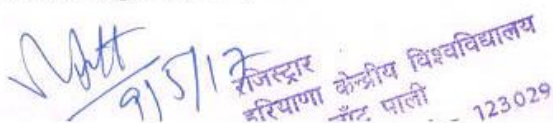 9/5/17
रजिस्ट्रार
हरियाणा केन्द्रीय विश्वविद्यालय
पाली 123029